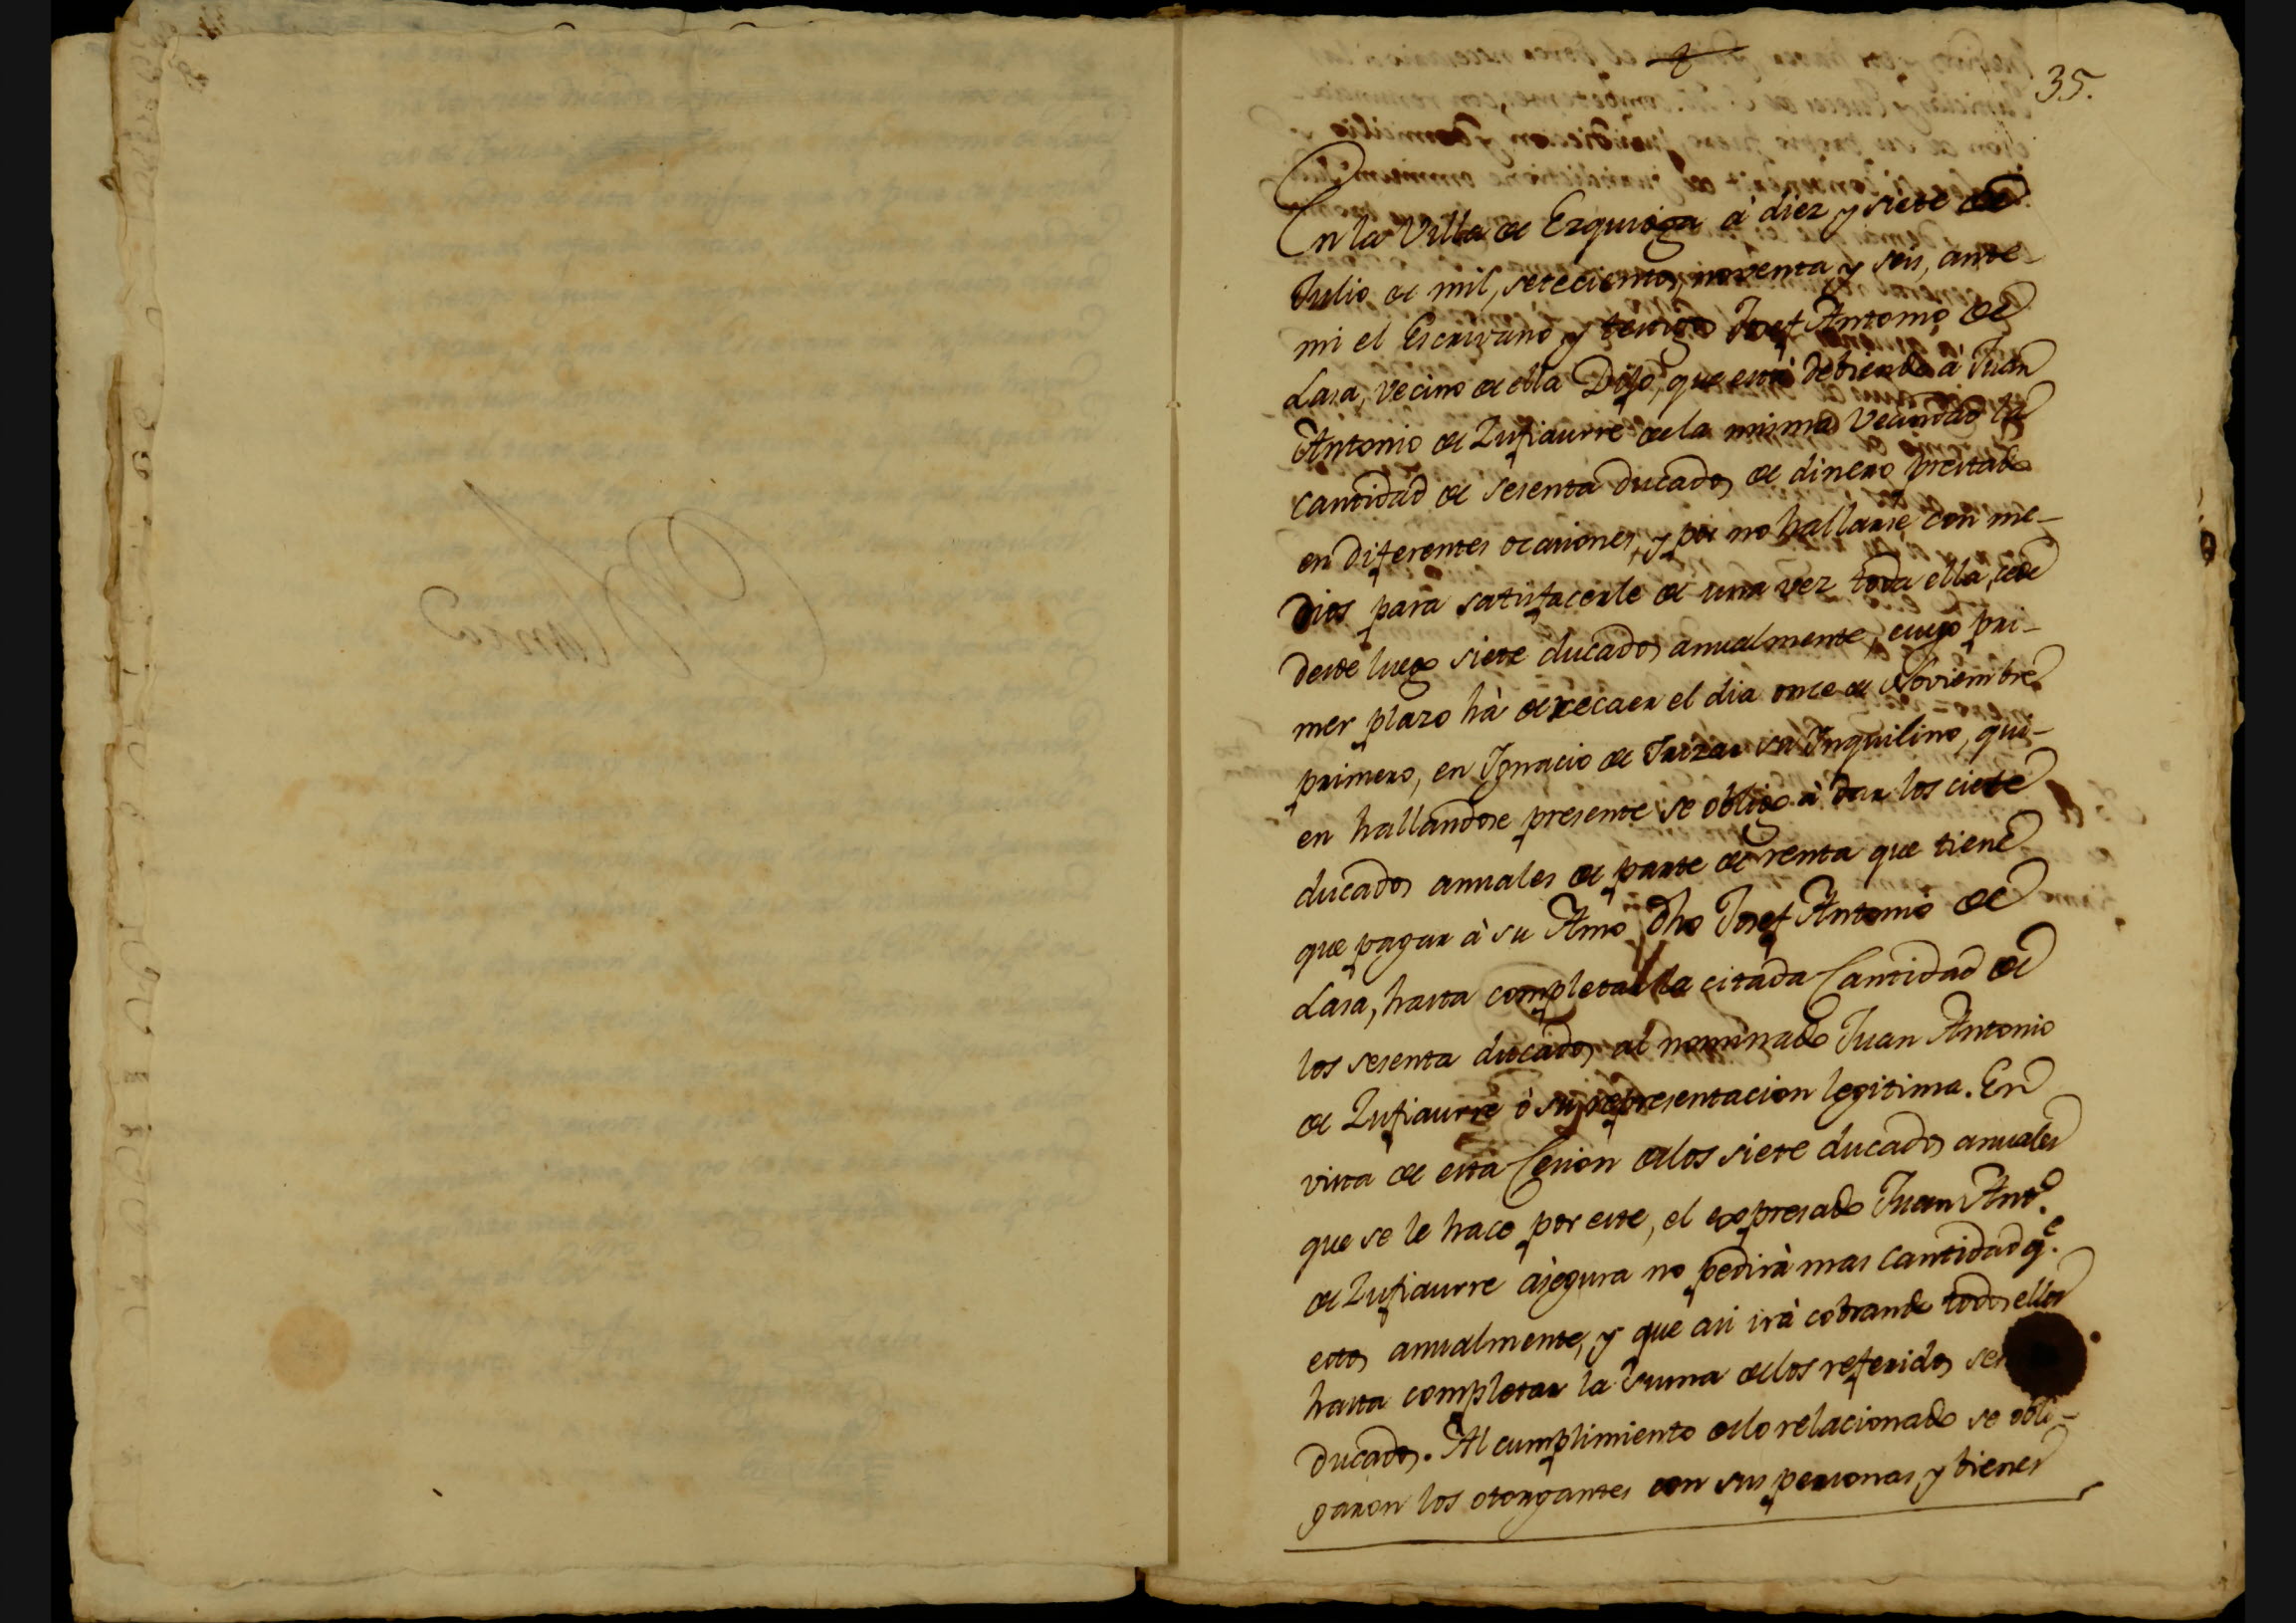 35.
En la Villa de Ezquioga à diez y siete de
Julio de mil, setecientos, noventa y seis, ante
mi el Escrivano y testigos Josef Antonio de
Lasa, vecino de ella Dijo, que està debiendo à Juan
Antonio de Zufiaurre de la misma Vecindad la
cantidad de sesenta ducados de dinero prestado
en diferentes ocasiones, y por no hallarse con me-
dios para satisfacerle de una vez toda ella, cede
desde luego siete ducados anualmente, cuyo pri-
mer plazo hà de recaer el dia once de Noviembre
primero, en Ignacio de Irizar su Inquilino, qui-
en hallandose presente se obligo à dar los ciete
ducados annuales de parte de renta que tiene
que pagar à su Amo dho Josef Antonio de
Lasa, hasta completar la citada Cantidad de
los sesenta ducados al nominado Juan Antonio
de Zufiaurre ò su representacion legitima. En
vista de esta Cesion de los siete ducados anuales
que se le hace por este, el expresado Juan Anto.
de Zufiaurre àsegura no pedirà mas cantidad qe.
estos anualmente, y que asi irà cobrando todos ellos
hasta completar la suma de los referidos ses
ducados. Al cumplimiento de lo relacionado se obli-
garon los otorgantes con sus personas, y bienes